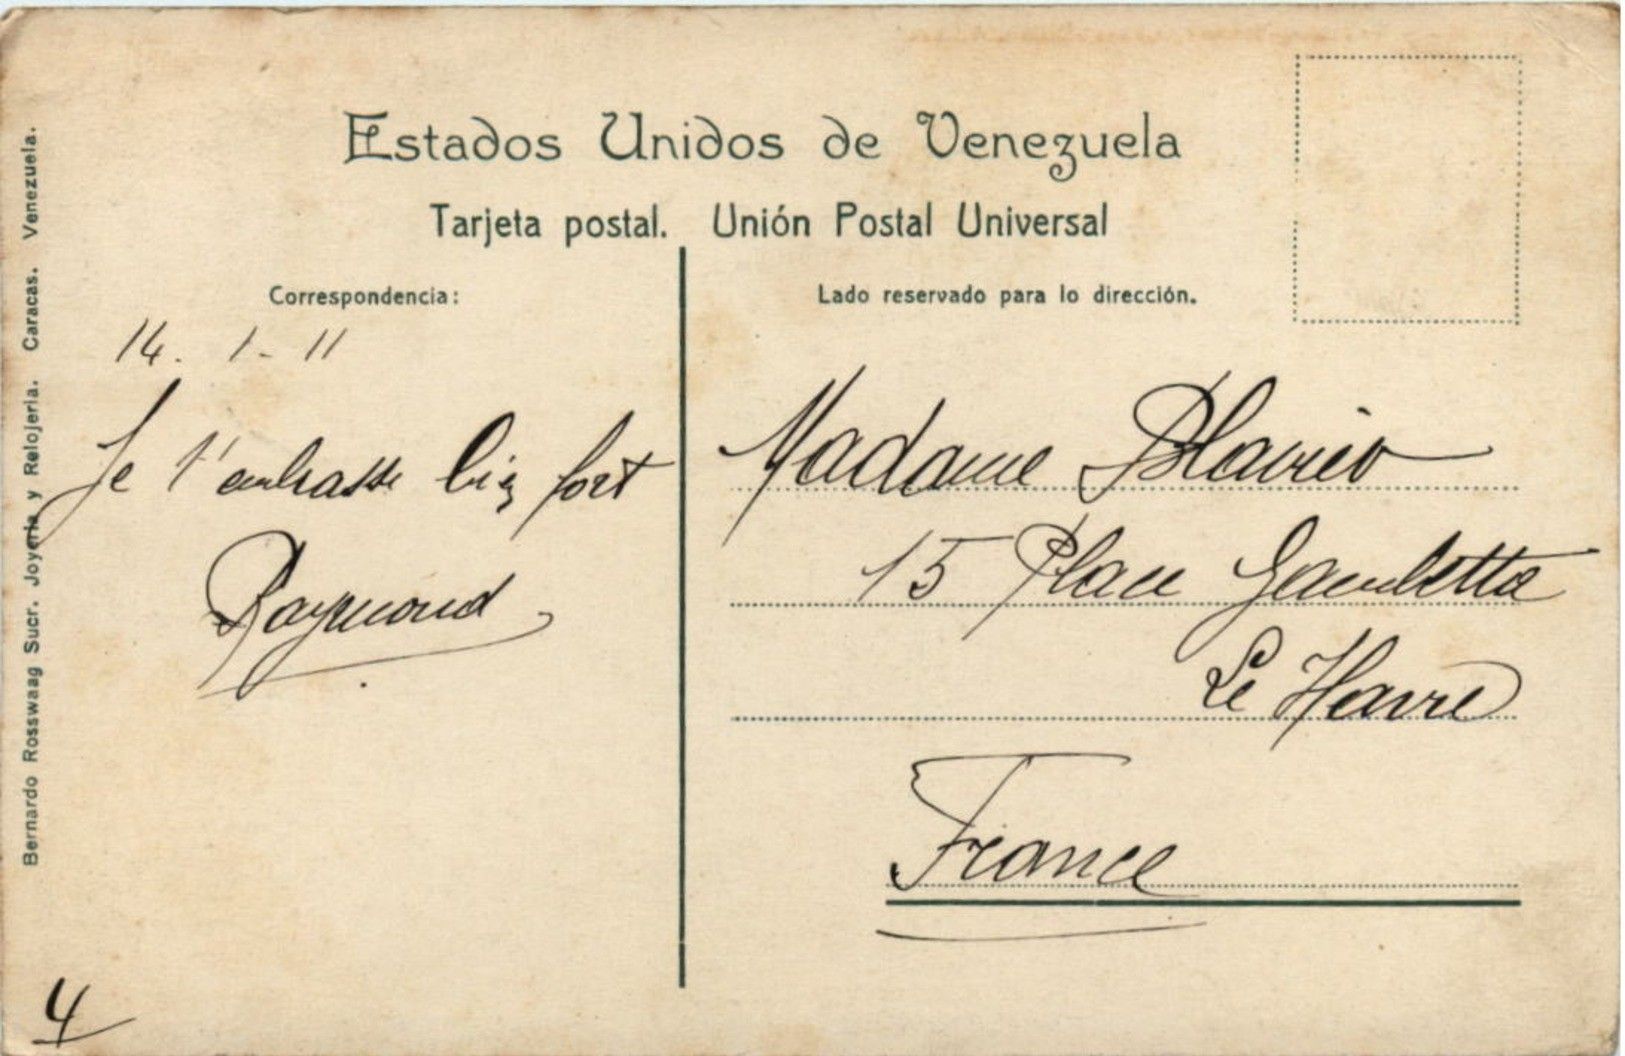 Estados Unidos de Venezuela
Tarjeta postal. Unión Postal Universal
Correspondencia:
14. 1 - 11
Je t'embrasse bien fort
Raymond
Lado reservado para lo dirección.
Madame
15 Place Gambetta
Le Havre
France
Bernardo Rosswaag Sucr. Joyería y Relojería. Caracas. Venezuela.
4